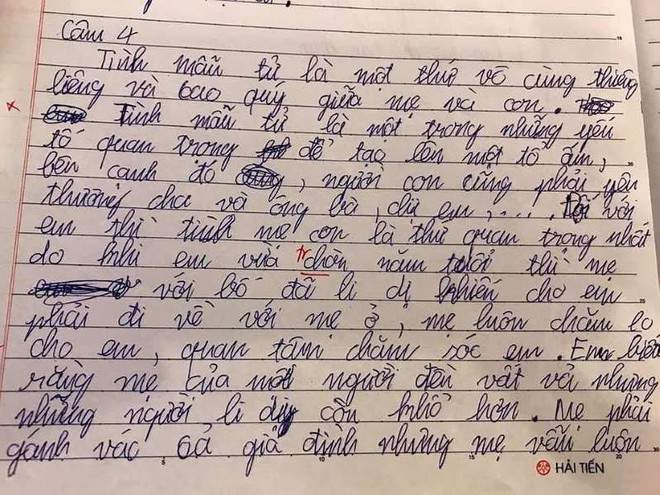 Câu 4
Tình mẫu tử là một thứ vô cùng thiêng
liêng và bao quý giữa mẹ và con.
Tình mẫu tử là một trong những yếu
tố quan trong để tạo lên một tổ ấm,
bên cạnh đó, người con cũng phải yêu
thương cha và ông bà, chị em,.... với
em thì tình mẹ con là thứ quan trọng nhất
do khi em vừa chòn năm tuổi thì mẹ
với bố đã li dị khiến cho em
phải đi về với mẹ ở, mẹ luôn chăm lo
cho em, quan tâm chăm sóc em. Em biết
rằng mẹ của một người đều vất vả nhưng
những người li dị còn khổ hơn. Mẹ phải
gánh vác cả gia đình nhưng mẹ vẫn luôn
HẢI TIẾN